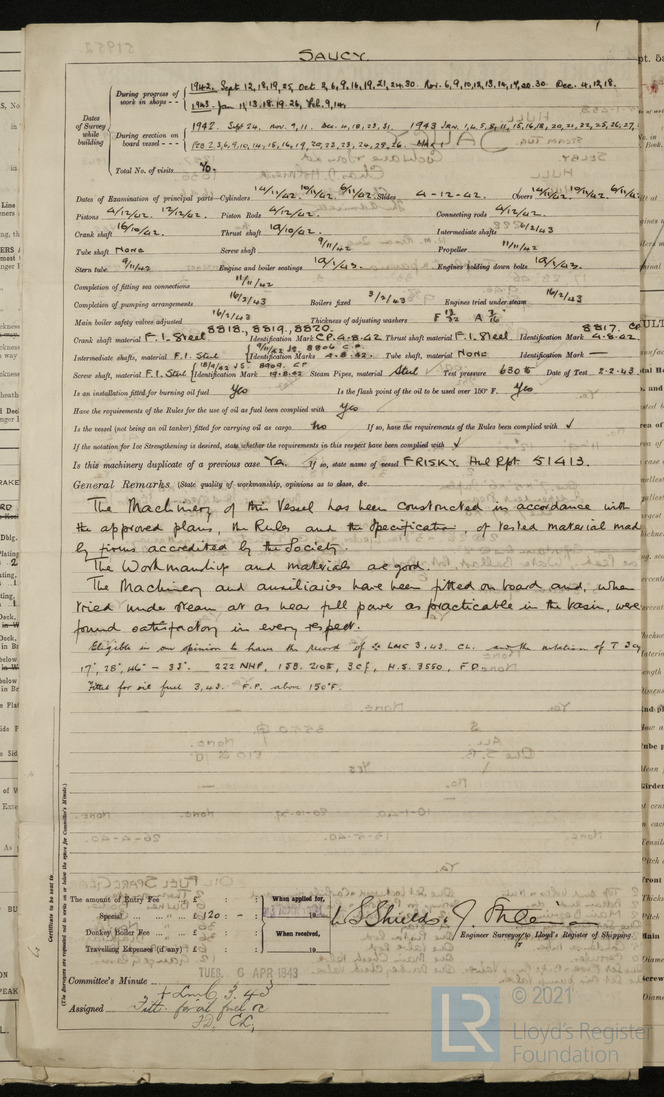 SAUCY.
During progress of work in shops - - 1942. Sept 12,18,19,25, Oct 2,6,9,16,19,21,24.30. Nov. 6,9,10,12,13,14,17,20.30. Dec. 4,12,18.
1943. Jan 11,13.18.19.26, Feb. 9,14.
Dates of Survey while building
During erection on board vessel - - - 1942. Sept 24. Nov. 9,11. Dec. 4,18,23,31. 1943 Jan. 1,4,5,8,11,15,16,18,20,21,22,25,26,27.
Feb 2,3,6,9,10,14,15,16,19,20,22,23,24,25.26. Mar 1.
Total No. of visits 70.
Dates of Examination of principal parts—Cylinders 14/11/42. 10/11/42. 6/11/42. Slides 4-12-42. Covers 14/11/42. 10/11/42. 6/11/42.
Pistons 4/12/42. 17/12/42. Piston Rods 4/12/42. Connecting rods 4/12/42.
Crank shaft 16/10/42. Thrust shaft 19/10/42. Intermediate shafts 6/2/43
Tube shaft None Screw shaft 9/11/42 Propeller 11/11/42
Stern tube 9/11/42 Engine and boiler seatings 19/1/43. Engines holding down bolts 19/1/43.
Completion of fitting sea connections 11/11/42
Completion of pumping arrangements 16/2/43 Boilers fixed 3/2/43 Engines tried under steam 16/2/43
Main boiler safety valves adjusted 16/2/43 Thickness of adjusting washers F 13/32 A 7/16
Crank shaft material F.I. Steel Identification Mark 8818., 8819., 8820. C.P. 4-8-42 Thrust shaft material F.I. Steel Identification Mark 8817. CP 4-8-42.
Intermediate shafts, material F.I. Steel Identification Marks 8806 C.P. 4-8-42. Tube shaft, material None Identification Mark —
Screw shaft, material F.I. Steel Identification Mark 8909. CP 19.8.42 Steam Pipes, material Steel Test pressure 630 lb Date of Test 2-2-43.
Is an installation fitted for burning oil fuel Yes Is the flash point of the oil to be used over 150° F. Yes
Have the requirements of the Rules for the use of oil as fuel been complied with Yes
Is the vessel (not being an oil tanker) fitted for carrying oil as cargo No If so, have the requirements of the Rules been complied with ✓
If the notation for Ice Strengthening is desired, state whether the requirements in this respect have been complied with ✓
Is this machinery duplicate of a previous case Yes. If so, state name of vessel FRISKY. Hul Rpt. 51413.
General Remarks (State quality of workmanship, opinions as to class, &c.
The Machinery of this Vessel has been constructed in accordance with
the approved plans, the Rules and the Specification, of tested material made
by firms accredited by the Society.
The Workmanship and materials are good.
The Machinery and auxiliaries have been fitted on board and, when
tried under steam at as near full power as practicable in the basin, were
found satisfactory in every respect.
Eligible in our opinion to have the record of ✠ LMC 3.43. CL. and the notation of T 3 Cy
17", 28", 46" – 33". 222 NHP, 1SB. 210 lb, 3Cf, H.S. 3550, F.D.
Fitted for oil fuel 3,43. F.P. above 150°F.
Certificate to be sent to
(The Surveyors are requested not to write on or below the space for Committee's Minute.)
The amount of Entry Fee .. £ : : When applied for,
Special ... ... £ 120 : - : 19
Donkey Boiler Fee ... ... £ : : When received,
Travelling Expenses (if any) £ : : 19
Engineer Surveyor to Lloyd's Register of Shipping.
Committee's Minute TUES. 6 APR 1943
Assigned + LMC 3.43
Fitt. for oil fuel &c
FD, CL,
LR © 2021
Lloyd's Register
Foundation